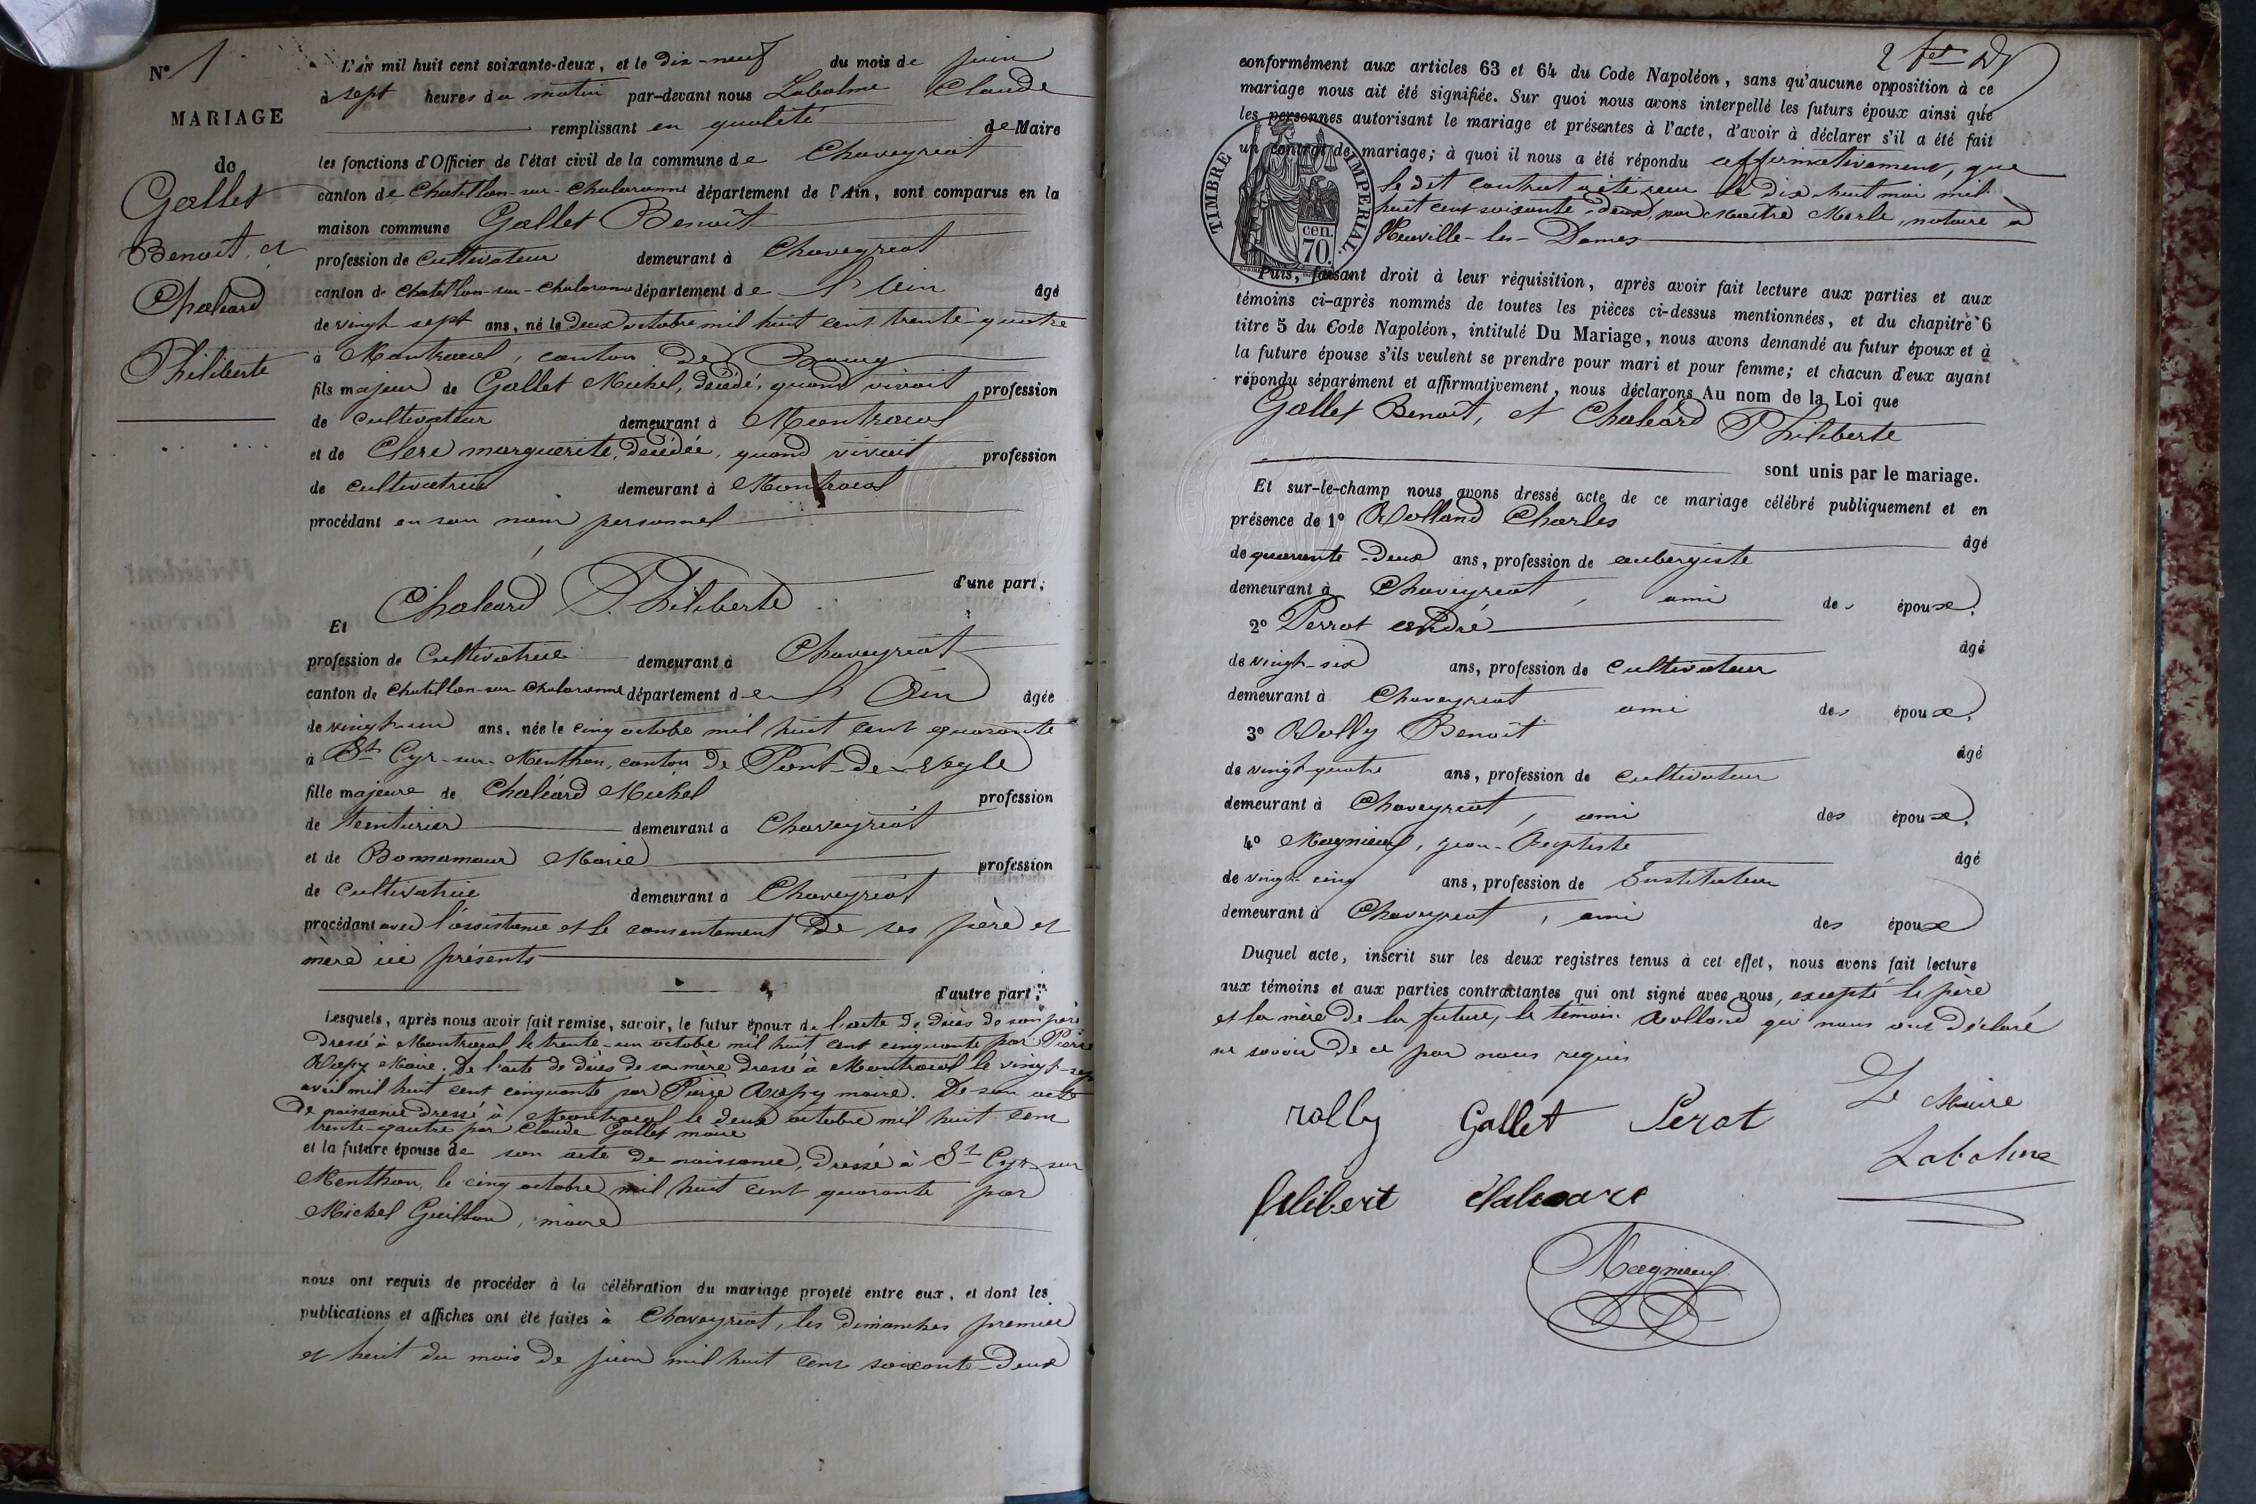 N° 1
MARIAGE
de
Gallet
Benoit, et
Chaléard
Philiberte
L'AN mil huit cent soixante-deux, et le dix-neuf du mois de juin
à sept heures du matin par-devant nous Labalme Claude
remplissant en qualité de Maire
les fonctions d'Officier de l'état civil de la commune de Chaveyriat
canton de Chatillon-sur-Chalaronne département de l'Ain, sont comparus en la
maison commune Gallet Benoit
profession de cultivateur demeurant à Chaveyriat
canton de Chatillon-sur-Chalaronne département de l'Ain âgé
de vingt-sept ans, né le deux octobre mil huit cent trente quatre
à Montracol, canton de Bourg
fils majeur de Gallet Michel, décédé, quand vivait profession
de cultivateur demeurant à Montracol
et de Clerc marguerite, décédée, quand vivait profession
de cultivatrice demeurant à Montracol
procédant en son nom personnel
d'une part;
Et Chaléard Philiberte
profession de Cultivatrice demeurant à Chaveyriat
canton de Chatillon-sur-Chalaronne département de l'Ain âgée
de vingt-un ans, née le cinq octobre mil huit cent quarante
à St Cyr-sur-Menthon, canton de Pont-de-Veyle
fille majeure de Chaléard Michel profession
de teinturier demeurant a Chaveyriat
et de Bonnamour Marie profession
de cultivatrice demeurant à Chaveyriat
procédant avec l'assistance et le consentement de ses père et
mère ici présents
d'autre part;
Lesquels, après nous avoir fait remise, savoir, le futur époux de l'acte de décès de son père
dressé à Montracol le trente-un octobre mil huit cent cinquante par Pierre
Rapy Maire. De l'acte de décès de sa mère dressé à Montracol le vingt-sept
avril mil huit cent cinquante par Pierre Rapy maire. De son acte
de naissance dressé à Montracol le deux octobre mil huit cent
trente-quatre par Claude Gallet maire
et la future épouse de son acte de naissance, dressé à St Cyr-sur
Menthon, le cinq octobre mil huit cent quarante par
Michel Guillon, maire
nous ont requis de procéder à la célébration du mariage projeté entre eux, et dont les
publications et affiches ont été faites à Chaveyriat, les dimanches premier
et huit du mois de juin mil huit cent soixante-deux
conformément aux articles 63 et 64 du Code Napoléon, sans qu'aucune opposition à ce
mariage nous ait été signifiée. Sur quoi nous avons interpellé les futurs époux ainsi que
les personnes autorisant le mariage et présentes à l'acte, d'avoir à déclarer s'il a été fait
un contrat de mariage; à quoi il nous a été répondu affirmativement, que
le dit contrat a été reçu le dix-huit mai mil
huit cent soixante-deux, par Maître Merle, notaire à
Neuville-les-Dames
TIMBRE IMPÉRIAL.
cen. 70.
Puis, faisant droit à leur réquisition, après avoir fait lecture aux parties et aux
témoins ci-après nommés de toutes les pièces ci-dessus mentionnées, et du chapitre 6
titre 5 du Code Napoléon, intitulé Du Mariage, nous avons demandé au futur époux et à
la future épouse s'ils veulent se prendre pour mari et pour femme; et chacun d'eux ayant
répondu séparément et affirmativement, nous déclarons Au nom de la Loi que
Gallet Benoit, et Chaléard Philiberte
sont unis par le mariage.
Et sur-le-champ nous avons dressé acte de ce mariage célébré publiquement et en
présence de 1° Rolland Charles âgé
de quarante-deux ans, profession de aubergiste
demeurant à Chaveyriat, ami des époux.
2° Perrot André âgé
de vingt-six ans, profession de cultivateur
demeurant à Chaveyriat ami des époux.
3° Rolly Benoit âgé
de vingt-quatre ans, profession de cultivateur
demeurant à Chaveyriat, ami des époux.
4° Magnieux, Jean-Baptiste âgé
de vingt-cinq ans, profession de Instituteur
demeurant à Chaveyriat, ami des époux
Duquel acte, inscrit sur les deux registres tenus à cet effet, nous avons fait lecture
aux témoins et aux parties contractantes qui ont signé avec nous, excepté le père
et la mère de la future, le témoin Rolland qui nous ont déclaré
ne savoir de ce par nous requis
Le Maire
rolly Gallet Perot
Labalme
filibert chaleard
Magnieux